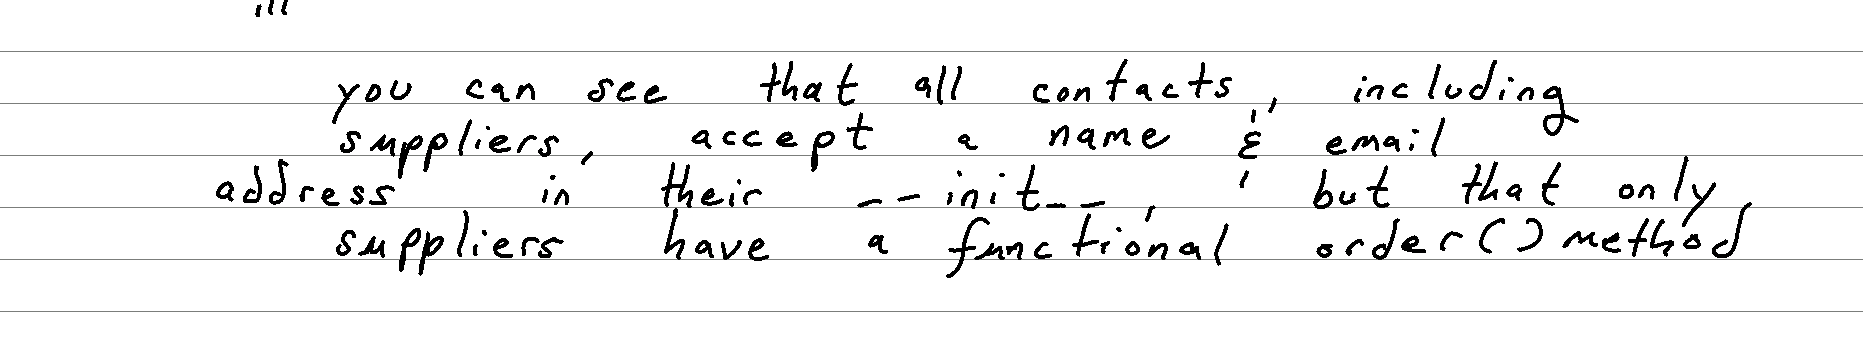 you can see that all contacts, including
suppliers, accept a name & email
address in their __init__, but that only
suppliers have a functional order() method